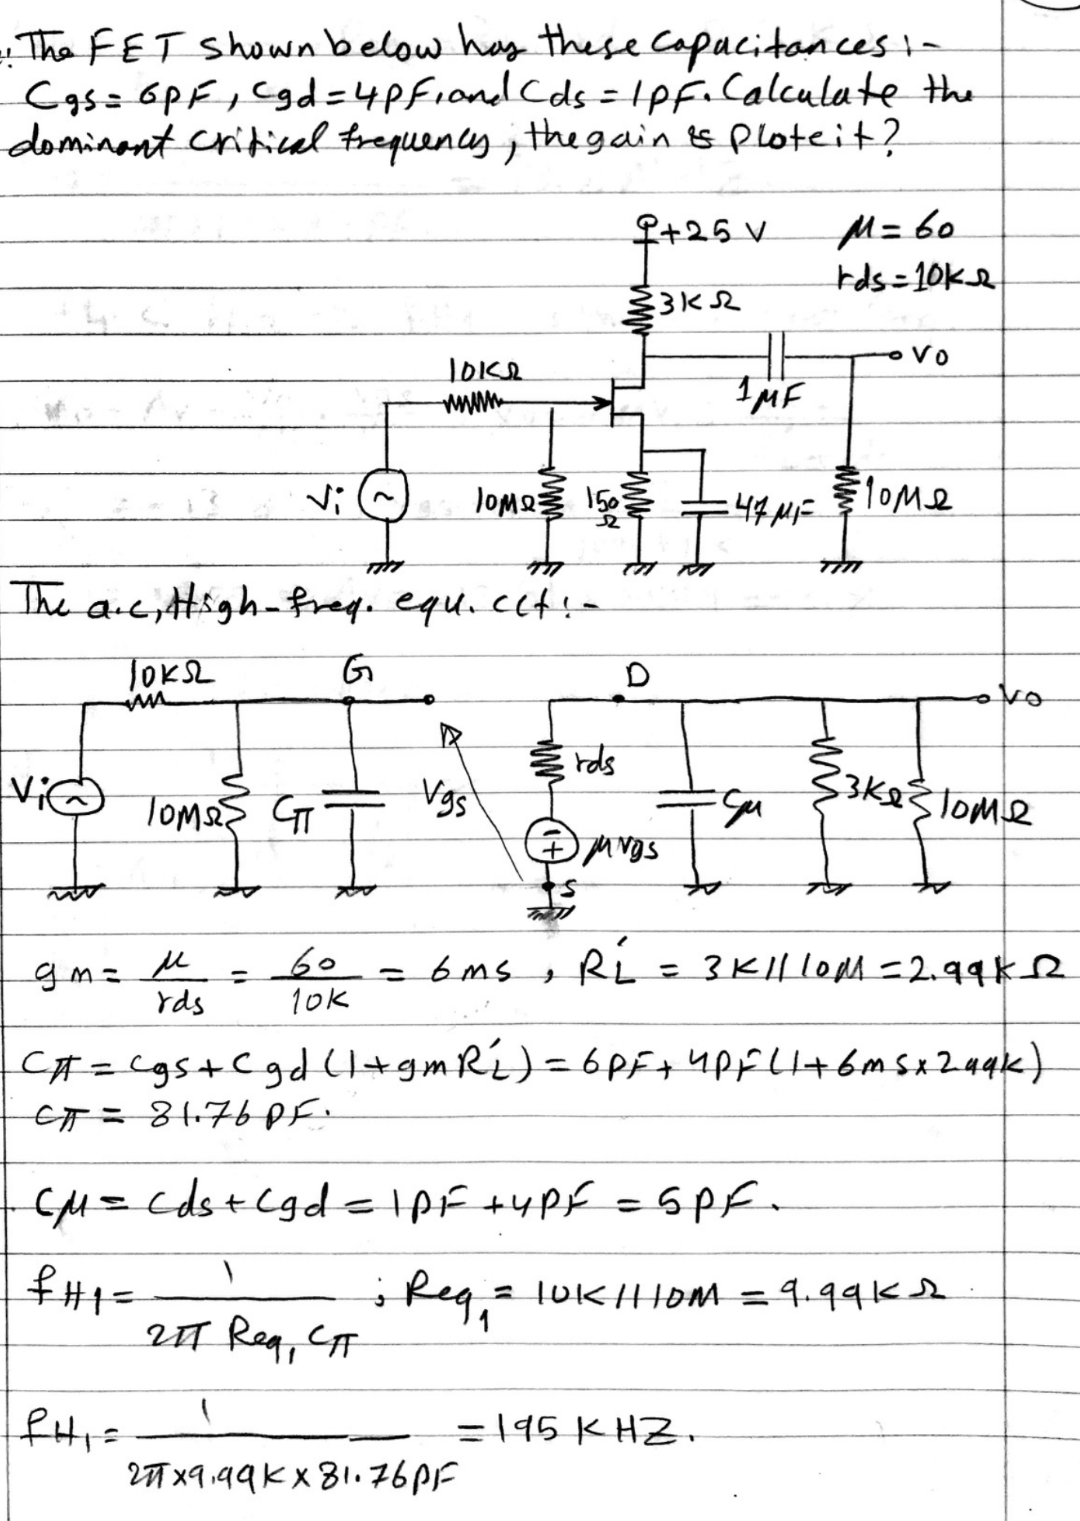 The FET shown below has these capacitances :-
Cgs = 6pF, Cgd = 4pF, and Cds = 1pF. Calculate the
dominant critical frequency, the gain & Plote it?
+25 V
M = 60
rds = 10kΩ
3KΩ
vo
10KΩ
1μF
Vi
10MΩ
150Ω
47μF
10MΩ
The a.c, High-freq. equ. cct :-
10KΩ
G
D
vo
Vi
10MΩ
Cπ
Vgs
rds
μvgs
S
Cμ
3KΩ
10MΩ
gm = μ/rds = 60/10K = 6ms , RĹ = 3K//10M = 2.99kΩ
Cπ = Cgs + Cgd (1+gmRĹ) = 6pF + 4pF (1+6ms x 2.99k)
Cπ = 81.76 pF.
Cμ = Cds + Cgd = 1pF + 4pF = 5pF.
fH1 = 1/2π Req1 Cπ ; Req1 = 10K//10M = 9.99kΩ
fH1 = 1/2π x 9.99K x 81.76pF = 195 KHZ.